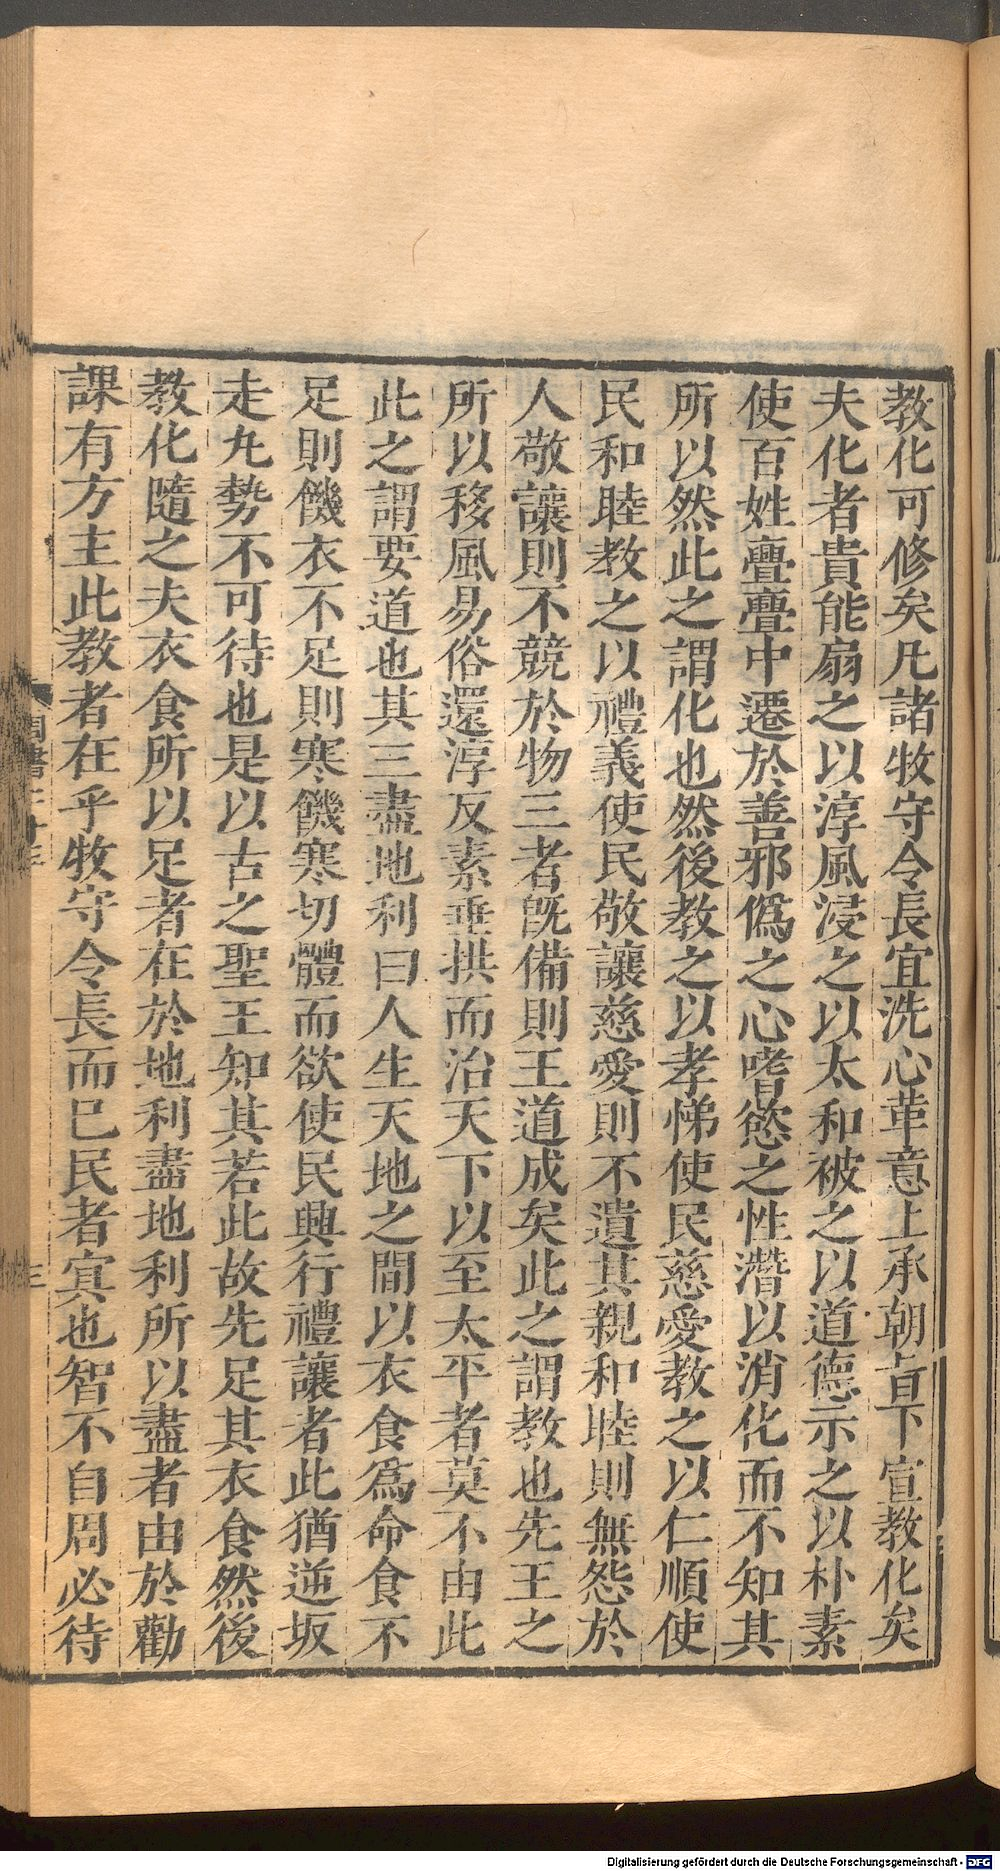 教化可修矣凡諸牧守令長宜洗心革意上承朝旨下宣教化矣
夫化者貴能扇之以淳風浸之以太和被之以道德示之以朴素
使百姓亹亹中遷於善邪僞之心嗜慾之性潛以消化而不知其
所以然此之謂化也然後教之以孝悌使民慈愛教之以仁順使
民和睦教之以禮義使民敬讓慈愛則不遺其親和睦則無怨於
人敬讓則不競於物三者既備則王道成矣此之謂教也先王之
所以移風易俗還淳反素垂拱而治天下以至太平者莫不由此
此之謂要道也其三盡地利曰人生天地之間以衣食爲命食不
足則饑衣不足則寒饑寒切體而欲使民興行禮讓者此猶逆坂
走丸勢不可待也是以古之聖王知其若此故先足其衣食然後
教化隨之夫衣食所以足者在於地利盡地利所以盡者由於勸
課有方主此教者在乎牧守令長而已民者㝠也智不自周必待
三
Digitalisierung gefördert durch die Deutsche Forschungsgemeinschaft - DFG